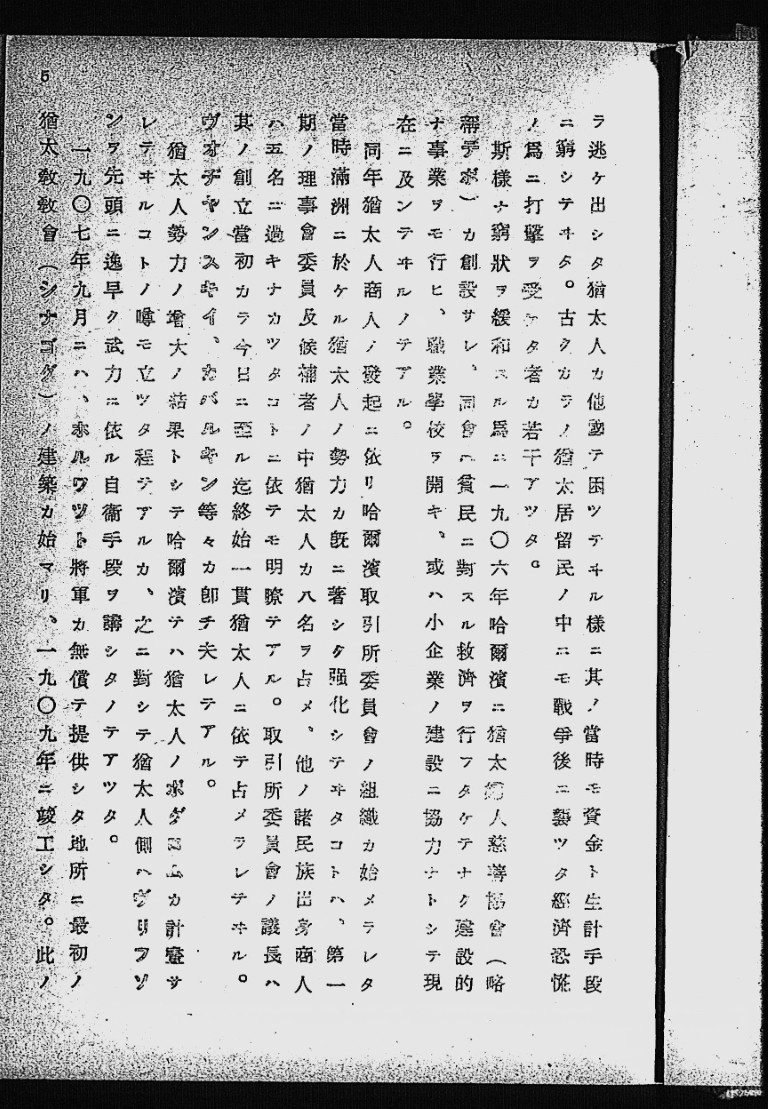 ラ逃ケ出シタ猶太人カ他動テ困ツテヰル様ニ其ノ當時モ資金ト生計手段
ニ窮シテヰタ。古クカラノ猶太居留民ノ中ニモ戰爭後ニ襲ツタ經濟恐慌
ノ爲ニ打擊ヲ受ケタ者カ若干アツタ。
斯樣ナ窮狀ヲ緩和スル爲ニ一九〇六年哈爾濱ニ猶太婦人慈善協會（略
稱デポ）カ創設サレ、同會ハ貧民ニ對スル救濟ヲ行フタケテナク建設的
ナ事業ヲモ行ヒ、職業學校ヲ開キ、或ハ小企業ノ建設ニ協力ナトシテ現
在ニ及ンテヰルノテアル。
同年猶太人商人ノ發起ニ依リ哈爾濱取引所委員會ノ組織カ始メラレタ
當時滿洲ニ於ケル猶太人ノ勢力カ旣ニ著シク强化シテヰタコトハ、第一
期ノ理事會委員及候補者ノ中猶太人カ八名ヲ占メ、他ノ諸民族出身商人
ハ五名ニ過キナカツタコトニ依テモ明瞭テアル。取引所委員會ノ議長ハ
其ノ創立當初カラ今日ニ至ル迄終始一貫猶太人ニ依テ占メラレテヰル。
ヴオデヤンスキイ、カバルキン等々カ卽チ夫レテアル。
猶太人勢力ノ增大ノ結果トシテ哈爾濱テハ猶太人ノポグロムカ計畫サ
レテヰルコトノ噂モ立ツタ程テアルカ、之ニ對シテ猶太人側ハヴリフソ
ンヲ先頭ニ逸早ク武力ニ依ル自衞手段ヲ講シタノテアツタ。
一九〇七年九月ニハ、ホルワツト將軍カ無償テ提供シタ地所ニ最初ノ
猶太敎敎會（シナゴグ）ノ建築カ始マリ、一九〇九年ニ竣工シタ。此ノ
5